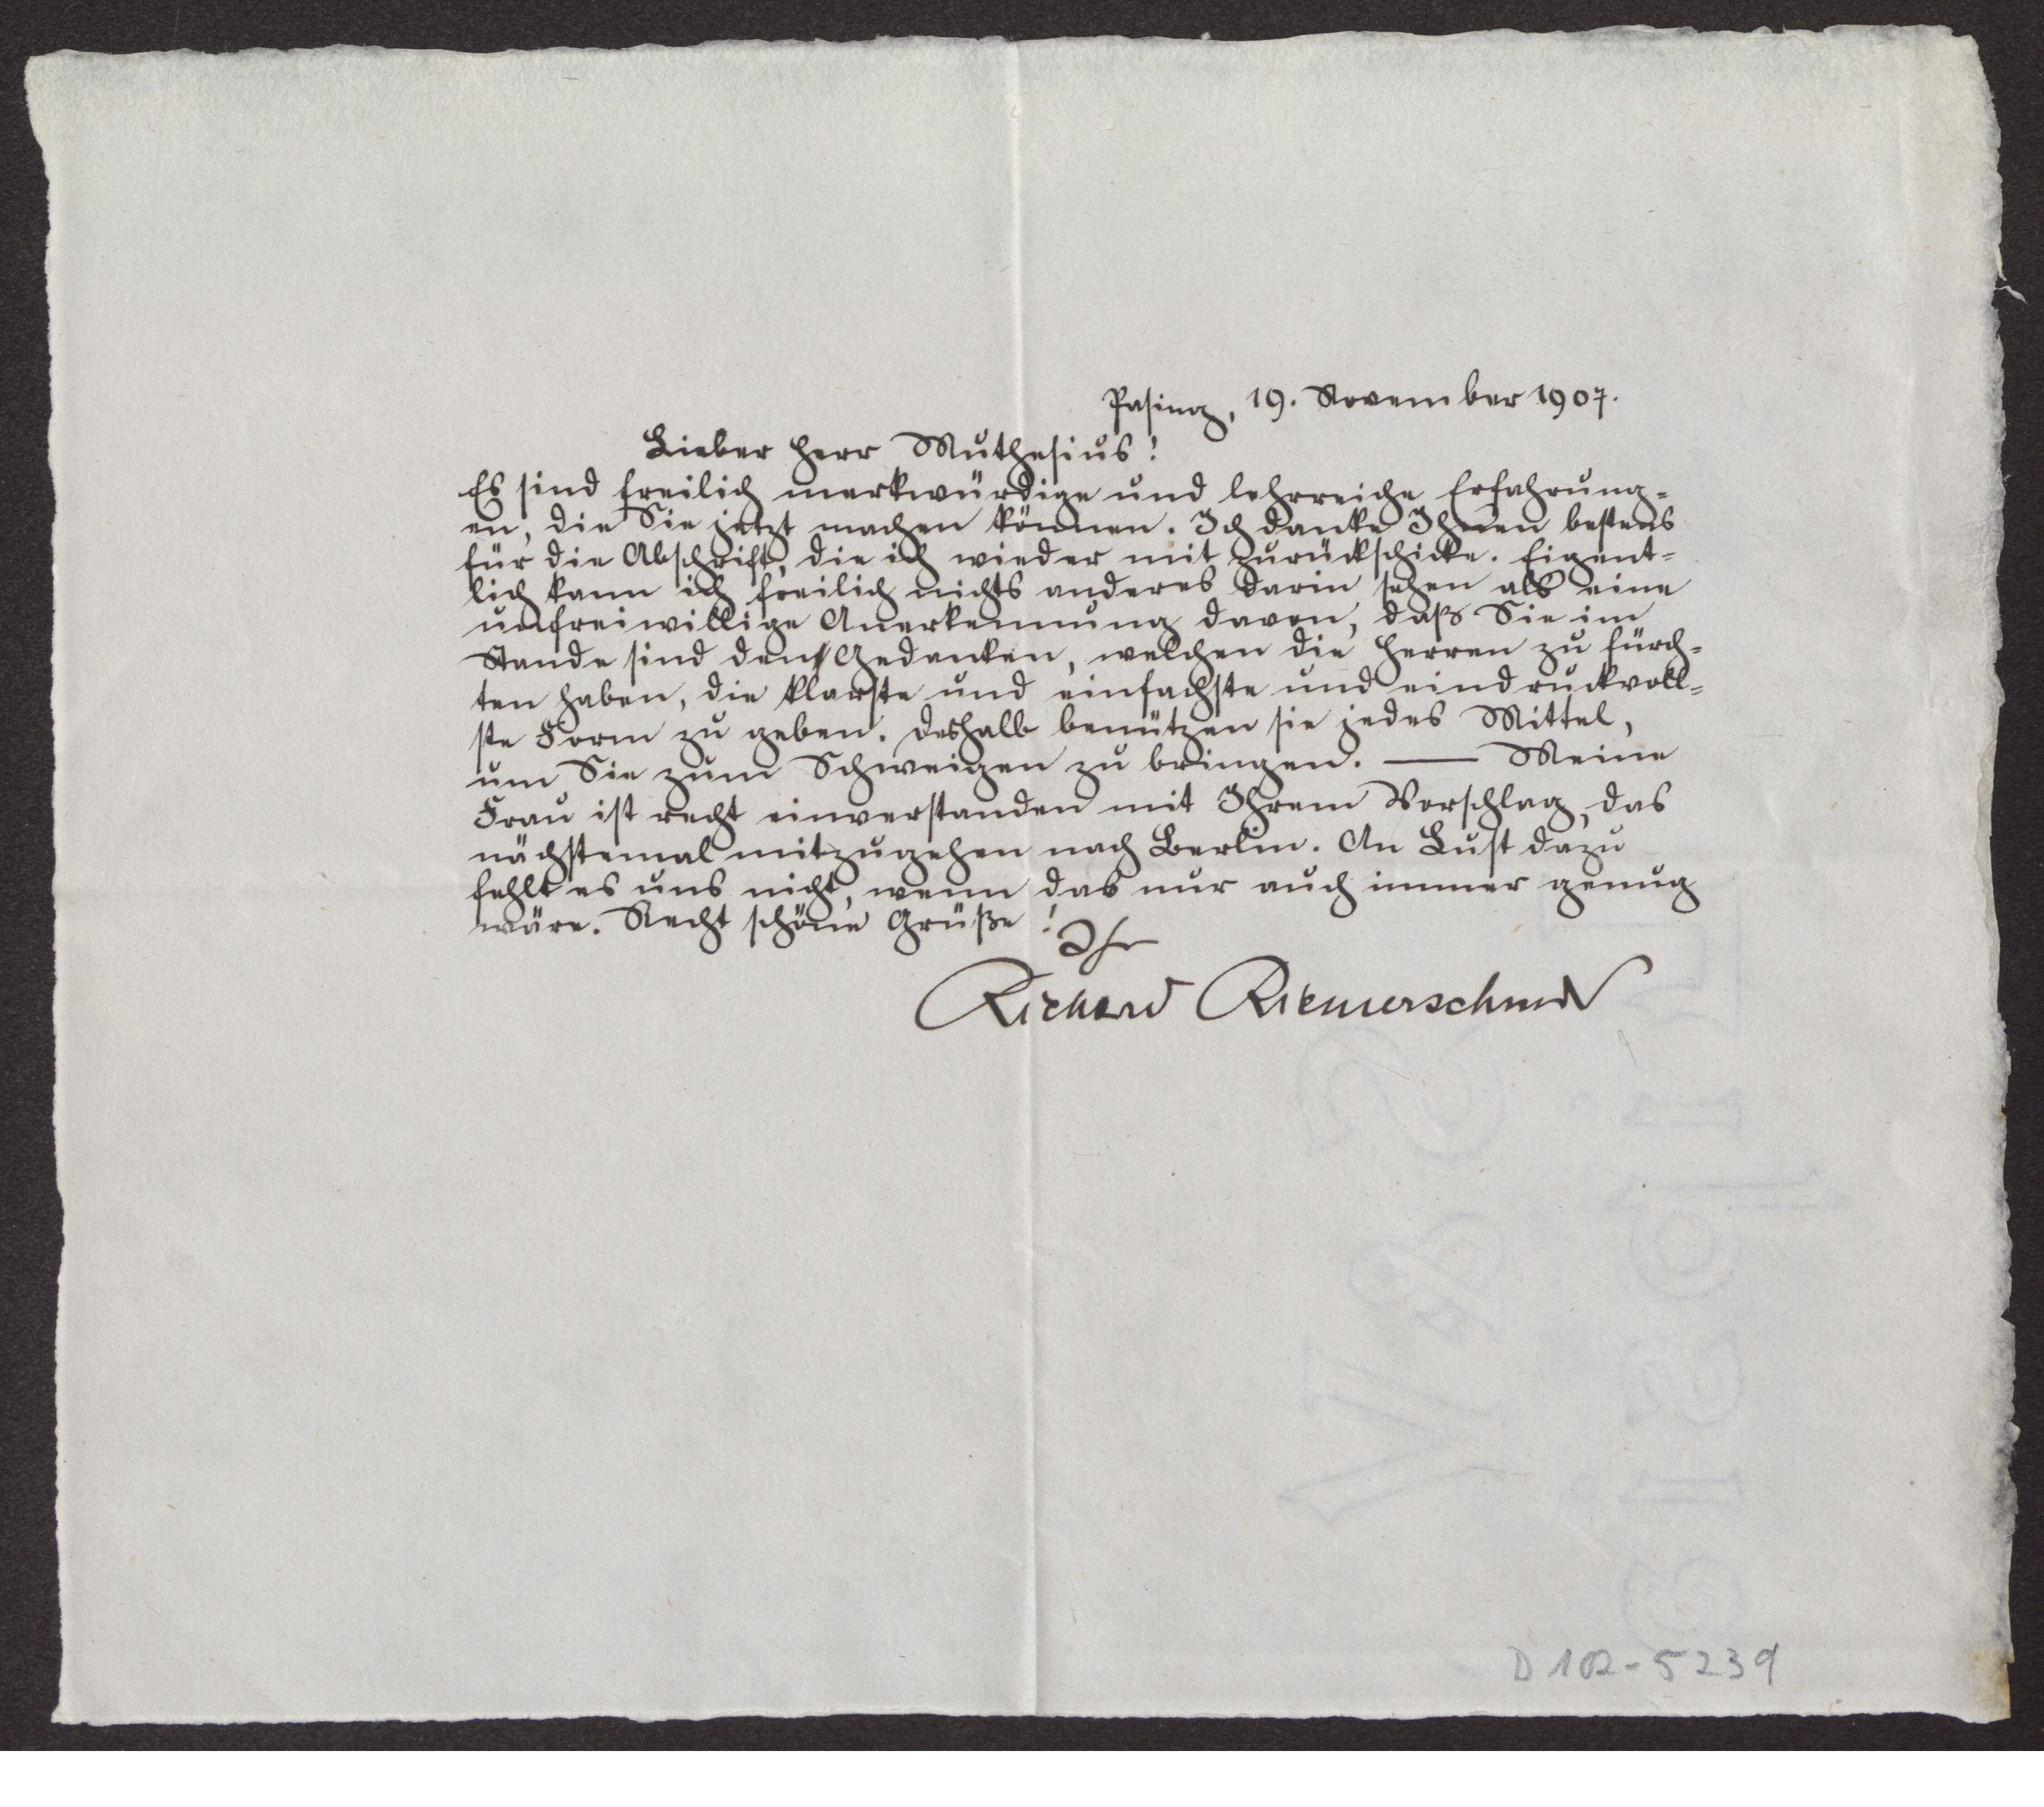 Pasing, 19. November 1907.
Lieber Herr Muthesius!
Es sind freilich merkwürdige und lehrreiche Erfahrung=
en, die Sie jetzt machen können. Ich danke Ihnen bestens
für die Abschrift, die ich wieder mit zurückschicke. Eigent=
lich kann ich freilich nichts anderes darin sehen als eine
unfreiwillige Anerkennung davon, daß Sie im
Stande sind den Gedanken, welchen die Herren zu fürch=
ten haben, die klarste und einfachste und eindruckvoll=
ste Form zu geben. Deshalb benützen sie jedes Mittel,
um Sie zum Schweigen zu bringen. — Meine
Frau ist recht einverstanden mit Ihrem Vorschlag, das
nächstemal mitzugehen nach Berlin. An Lust dazu
fehlt es uns nicht, wenn das nur auch immer genug
wäre. Recht schöne Grüße!
Ihr
Richard Riemerschmid
D 102-5239